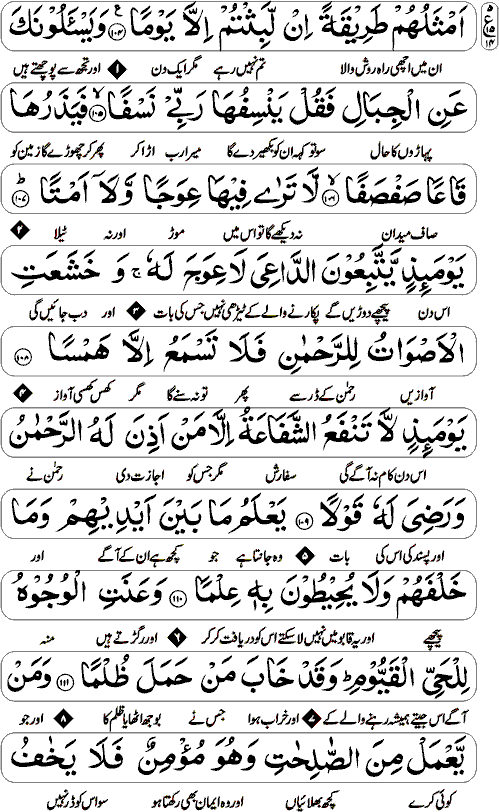 اَمْثَلُهُمْ طَرِيْقَةً اِنْ لَّبِثْتُمْ اِلَّا يَوْمًا ۝۱۰۴ وَيَسْـَٔلُوْنَكَ
ان میں اچھی راہ روش والا تم نہیں رہے مگر ایک دن ۱ اور تجھ سے پوچھتے ہیں
عَنِ الْجِبَالِ فَقُلْ يَنْسِفُهَا رَبِّيْ نَسْفًا ۝۱۰۵ فَيَذَرُهَا
پہاڑوں کا حال سو تو کہہ ان کو بکھیر دے گا میرا رب اڑا کر پھر کر چھوڑے گا زمین کو
قَاعًا صَفْصَفًا ۝۱۰۶ لَّا تَرٰى فِيْهَا عِوَجًا وَّلَآ اَمْتًا ۝۱۰۷
صاف میدان نہ دیکھے گا تو اس میں موڑ اور نہ ٹیلا ۲
يَوْمَئِذٍ يَّتَّبِعُوْنَ الدَّاعِيَ لَا عِوَجَ لَهٗ وَ خَشَعَتِ
اس دن پیچھے دوڑیں گے پکارنے والے کے ٹیڑھی نہیں جس کی بات ۳ اور دب جائیں گی
الْاَصْوَاتُ لِلرَّحْمٰنِ فَلَا تَسْمَعُ اِلَّا هَمْسًا ۝۱۰۸
آوازیں رحمٰن کے ڈر سے پھر تو نہ سنے گا مگر کھس کھسی آواز ۴
يَوْمَئِذٍ لَّا تَنْفَعُ الشَّفَاعَةُ اِلَّا مَنْ اَذِنَ لَهُ الرَّحْمٰنُ
اس دن کام نہ آئے گی سفارش مگر جس کو اجازت دی رحمٰن نے
وَرَضِيَ لَهٗ قَوْلًا ۝۱۰۹ يَعْلَمُ مَا بَيْنَ اَيْدِيْهِمْ وَمَا
اور پسند کی اس کی بات ۵ وہ جانتا ہے جو کچھ ہے ان کے آگے اور
خَلْفَهُمْ وَلَا يُحِيْطُوْنَ بِهٖ عِلْمًا ۝۱۱۰ وَعَنَتِ الْوُجُوْهُ
پیچھے اور یہ قابو میں نہیں لا سکتے اس کو دریافت کر کر ۶ اور رگڑتے ہیں منہ
لِلْحَيِّ الْقَيُّوْمِ وَقَدْ خَابَ مَنْ حَمَلَ ظُلْمًا ۝۱۱۱ وَمَنْ
آگے اس جیتے ہمیشہ رہنے والے کے ۷ اور خراب ہوا جس نے بوجھ اٹھایا ظلم کا ۸ اور جو
يَّعْمَلْ مِنَ الصّٰلِحٰتِ وَهُوَ مُؤْمِنٌ فَلَا يَخٰفُ
کوئی کرے کچھ بھلائیاں اور وہ ایمان بھی رکھتا ہو سو اس کو ڈر نہیں